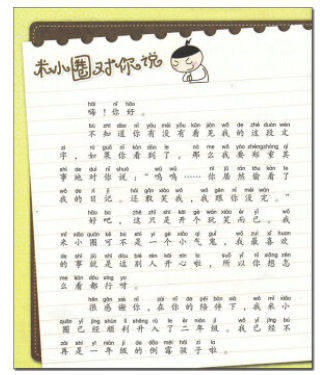 米小圈对你说
hāi nǐ hǎo
嗨！你好。
bù zhī dào nǐ yǒu méi yǒu kàn jiàn wǒ de zhè duàn wén
不知道你有没有看见我的这段文
zì rú guǒ nǐ kàn dào le nà me wǒ yào zhèng zhòng qí
字，如果你看到了，那么我要郑重其
shì de duì nǐ shuō nǐ jū rán tōu kàn le
事地对你说：“呜呜……你居然偷看了
wǒ de rì jì hái gǎn xiào wǒ wǒ gēn nǐ méi wán
我的日记。还敢笑我，我跟你没完。”
hǎo ba zhè zhǐ shì kāi gè wán xiào ér yǐ wǒ
好吧，这只是开个玩笑而已。我
mǐ xiǎo quān kě bú shì yí gè xiǎo qì guǐ wǒ zuì xǐ huan
米小圈可不是一个小气鬼，我最喜欢
de shì jiù shì dòu bié rén kāi xīn la suǒ yǐ nǐ xiǎng zěn
的事就是逗别人开心啦，所以你想怎
me kàn dōu xíng ya
么看都行呀。
hěn gǎn xiè nǐ zài nǐ de péi bàn xià wǒ mǐ xiǎo
很感谢你，在你的陪伴下，我米小
quān yǐ jīng shùn lì shēng rù le èr nián jí wǒ yǐ jīng bú
圈已经顺利升入了二年级。我已经不
zài shì yī nián jí de dǎo méi hái zi la
再是一年级的倒霉孩子啦。